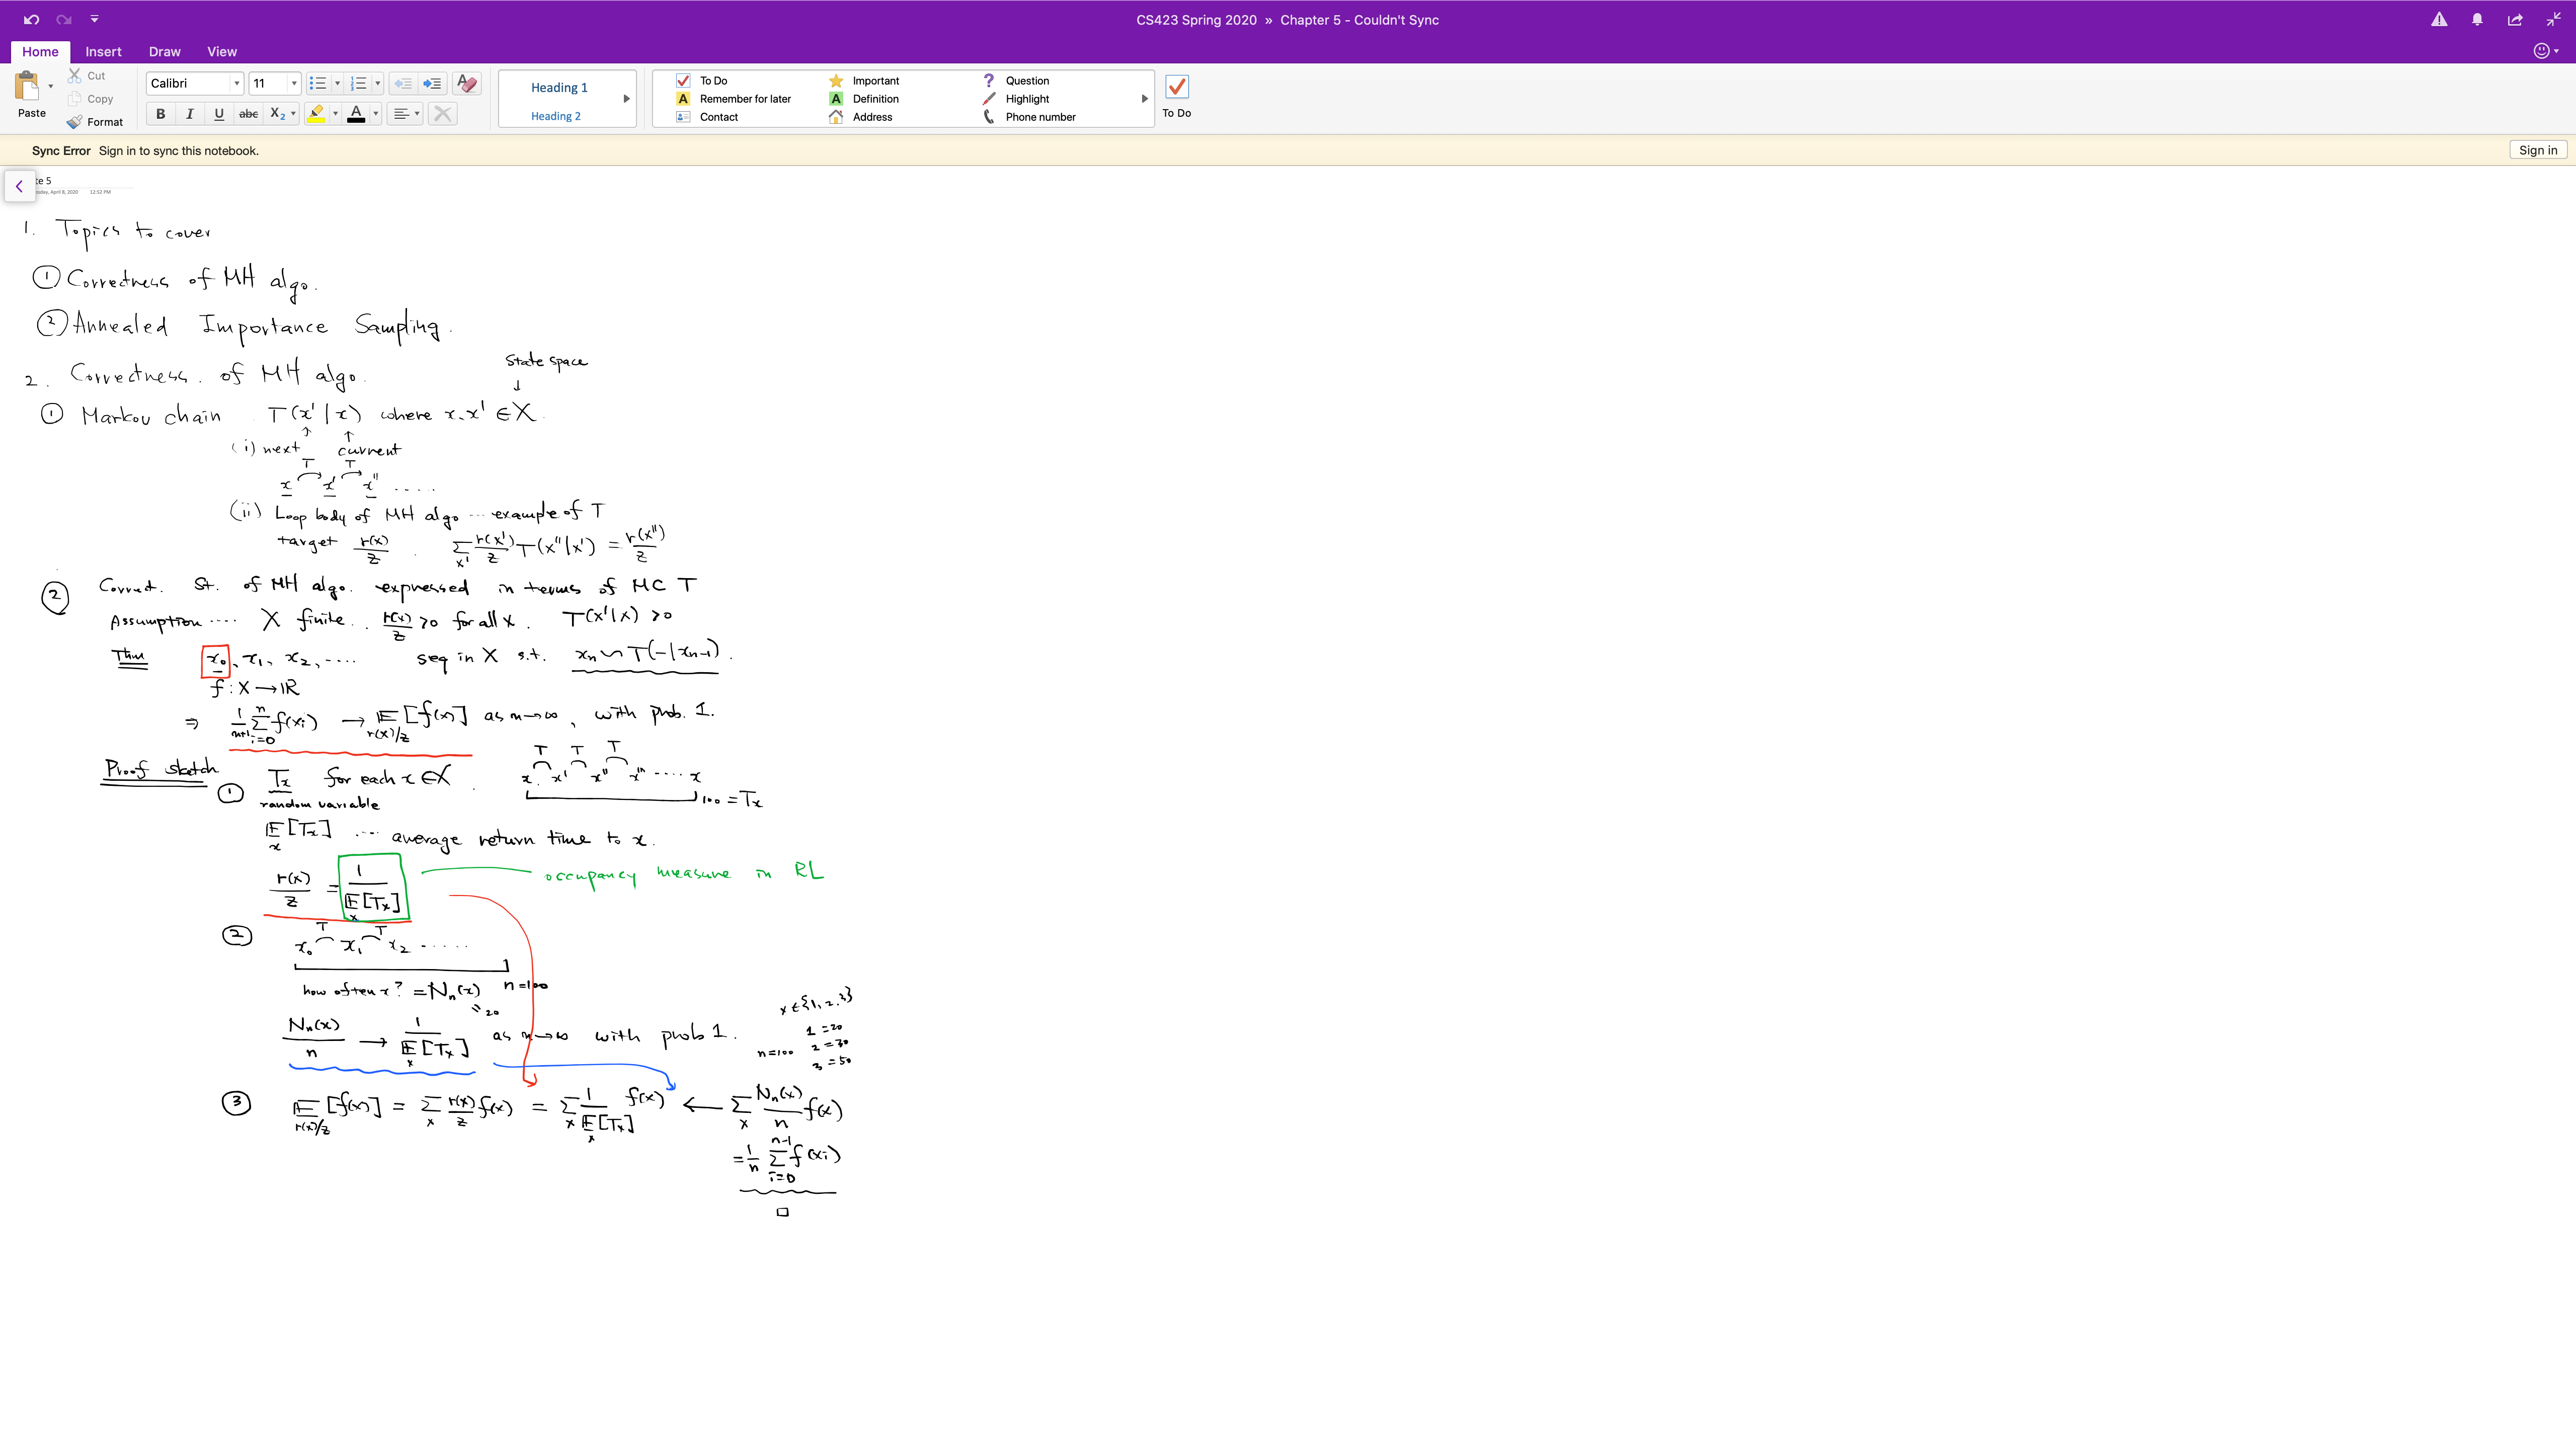 CS423 Spring 2020 » Chapter 5 - Couldn't Sync
Home Insert Draw View
Paste
Cut
Copy
Format
Calibri 11
B I U abc X₂ A
Heading 1
Heading 2
To Do Important Question
Remember for later Definition Highlight
Contact Address Phone number
To Do
Sync Error Sign in to sync this notebook.
Sign in
te 5
April 8, 2020 12:52 PM
1. Topics to cover
① Correctness of MH algo.
② Annealed Importance Sampling.
state space
↓
2. Correctness. of MH algo.
① Markov chain T(x'|x) where x, x' ∈ X.
↑ ↑
(i) next current
T T
x x' x'' .....
(ii) Loop body of MH algo ... example of T
target r(x)/Z . Σ_x' r(x')/Z T(x''|x') = r(x'')/Z
② Correct. St. of MH algo. expressed in terms of MC T
Assumption .... X finite.. r(x)/Z >0 for all x. T(x'|x) >0
Thm x₀, x₁, x₂, .... seq in X s.t. xₙ ~ T(-|xₙ₋₁).
f : X → ℝ
⇒ 1/(n+1) Σ_{i=0}^{n} f(xᵢ) → 𝔼_{r(x)/Z}[f(x)] as n→∞, with prob. 1.
T T T
Proof sketch
① Tₓ for each x ∈ X. x x' x'' x''' .... x
random variable 100 = Tₓ
𝔼ₓ[Tₓ] ... average return time to x.
r(x)/Z = 1/𝔼ₓ[Tₓ] occupancy measure in RL
T T
② x₀ x₁ x₂ ......
how often x? = Nₙ(x) n=100
= 20
x ∈ {1, 2, 3}
Nₙ(x)/n → 1/𝔼ₓ[Tₓ] as n→∞ with prob 1.
n=100
1 = 20
2 = 30
3 = 50
③ 𝔼_{r(x)/Z}[f(x)] = Σₓ r(x)/Z f(x) = Σₓ 1/𝔼ₓ[Tₓ] f(x) ← Σₓ Nₙ(x)/n f(x)
= 1/n Σ_{i=0}^{n-1} f(xᵢ)
□